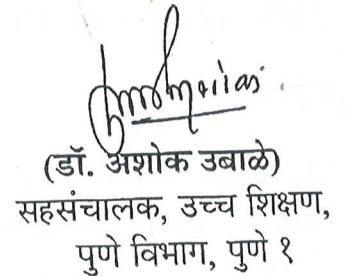 (डॉ. अशोक उबाळे)
सहसंचालक, उच्च शिक्षण,
पुणे विभाग, पुणे १